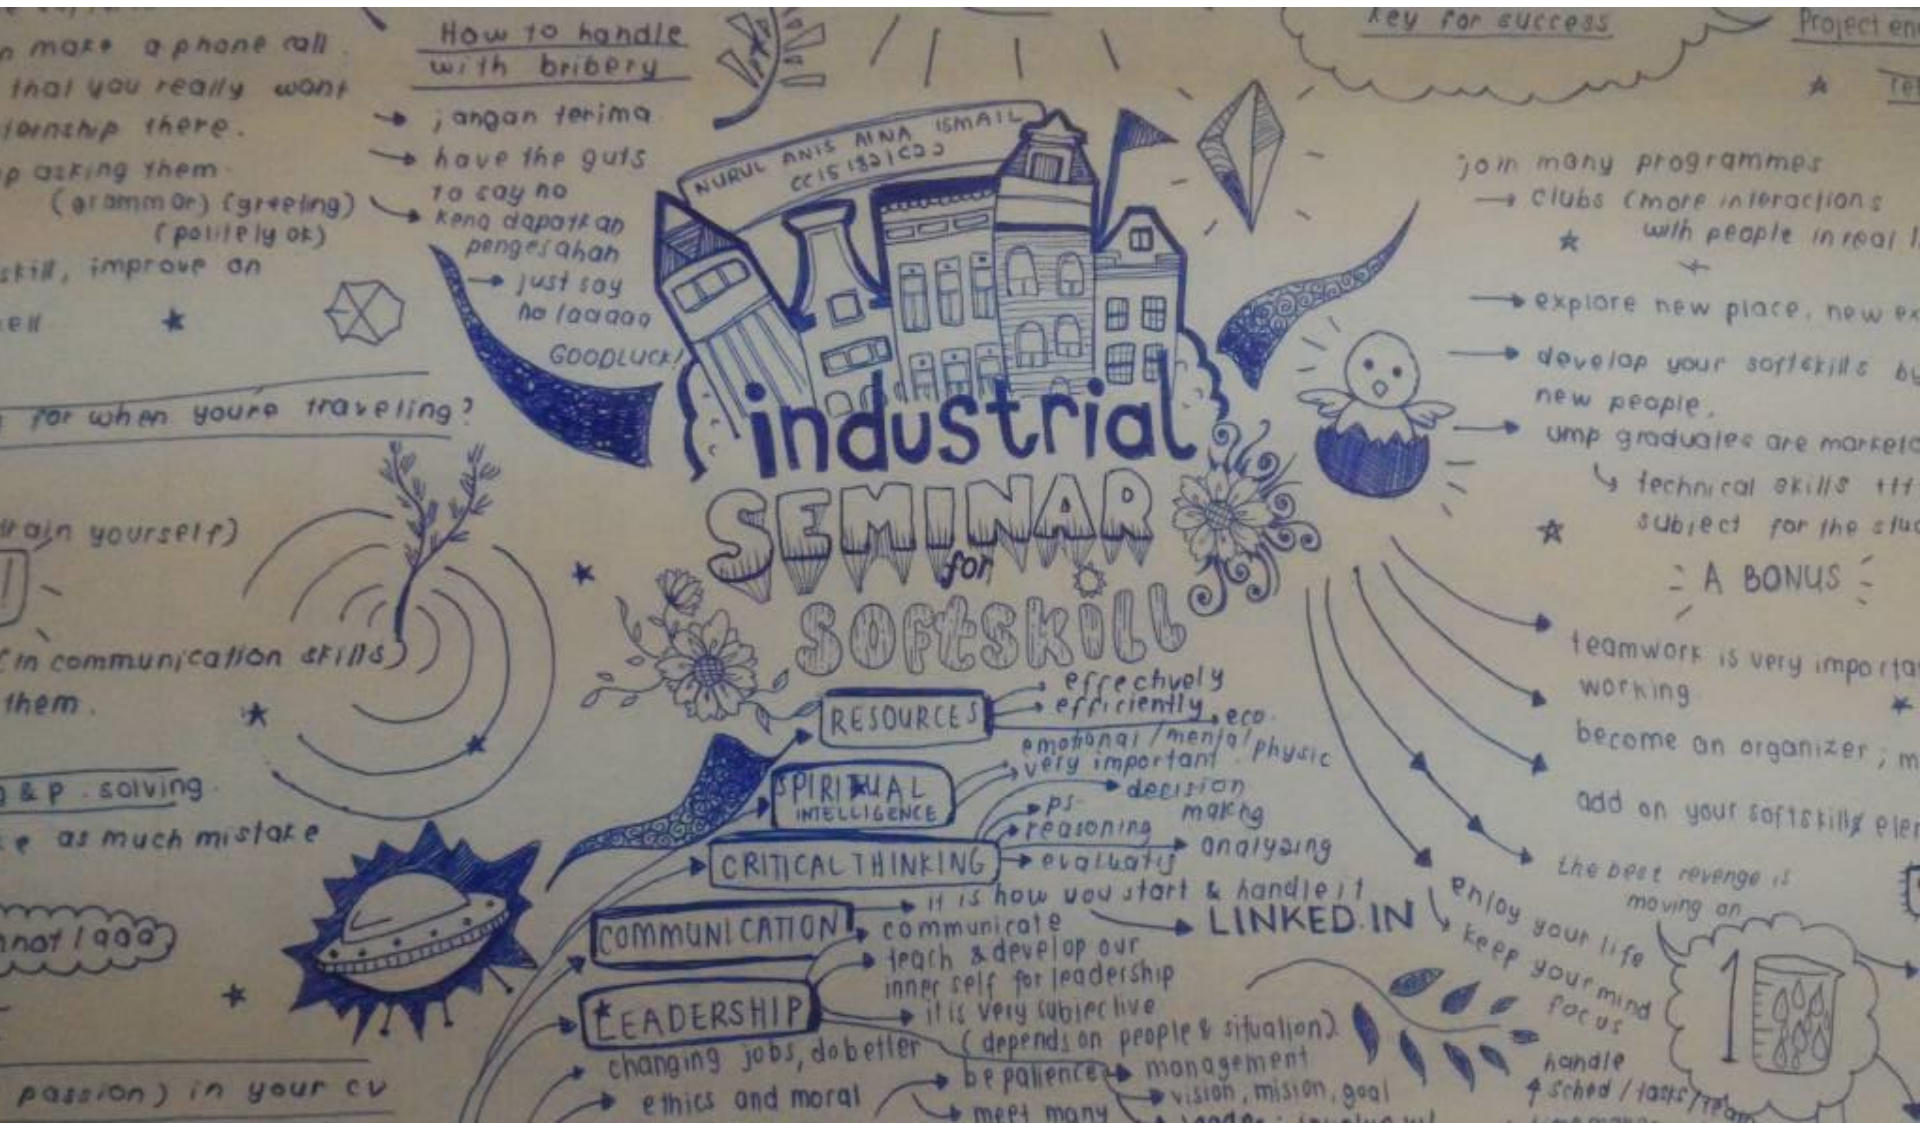 make a phone call.
that you really want
there.
asking them.
(grammar) (greeting)
(politely ok)
skill, improve on
for when you're traveling?
yourself)
(in communication skills)
them.
& p. solving.
as much mistake
passion) in your cv
How to handle
with bribery
jangan terima
have the guts
to say no
kena dapatkan
pengesahan
just say
no laaaaa
GOODLUCK!
NURUL ANIS AINA ISMAIL
industrial
SEMINAR
for
SOFTSKILL
RESOURCES
effectively
efficiently
eco.
SPIRITUAL
INTELLIGENCE
emotional/mental physic
very important.
CRITICAL THINKING
decision
making
ps-
reasoning
analyzing
COMMUNICATION
it is how you start & handle it
LINKED.IN
communicate
LEADERSHIP
teach & develop our
inner self for leadership
it is very subjective
(depends on people & situation)
be patience
management
vision, mision, goal
meet many
changing jobs, do better
ethics and moral
key for success
Project
join many programmes
clubs (more interactions
with people in real
explore new place, new
develop your softskills by
new people.
ump graduates are
technical skills
subject for the
A BONUS
teamwork is very
working
become an organizer;
add on your softskills
the best revenge is
moving on
enjoy your life
keep your mind
focus
handle
sched/tasks/team
1